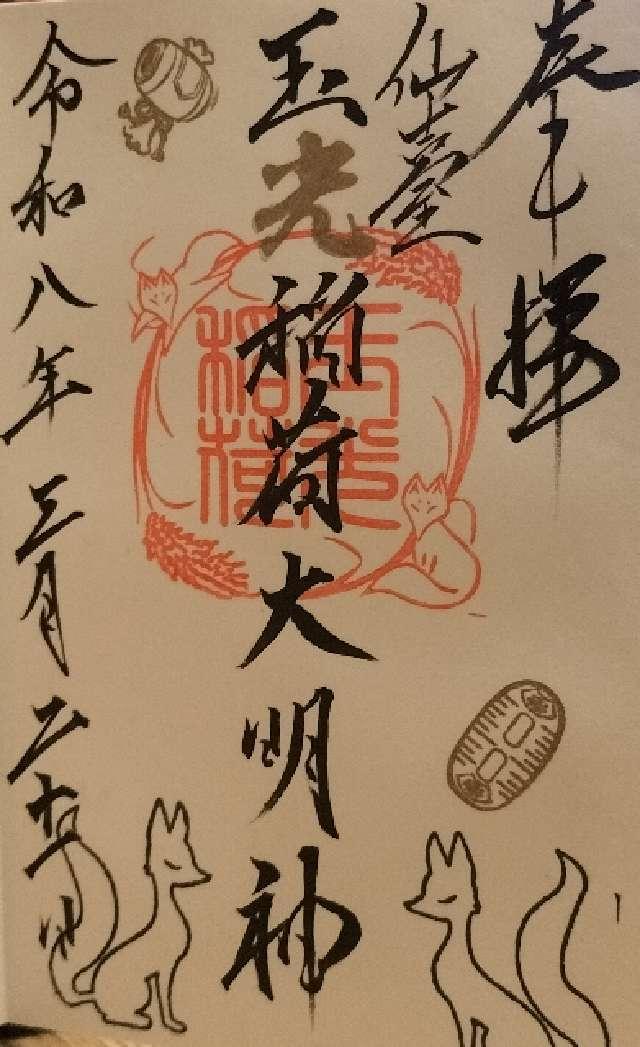 奉拝
仙臺
玉光稲荷大明神
玉光稲荷
令和八年三月二十五日